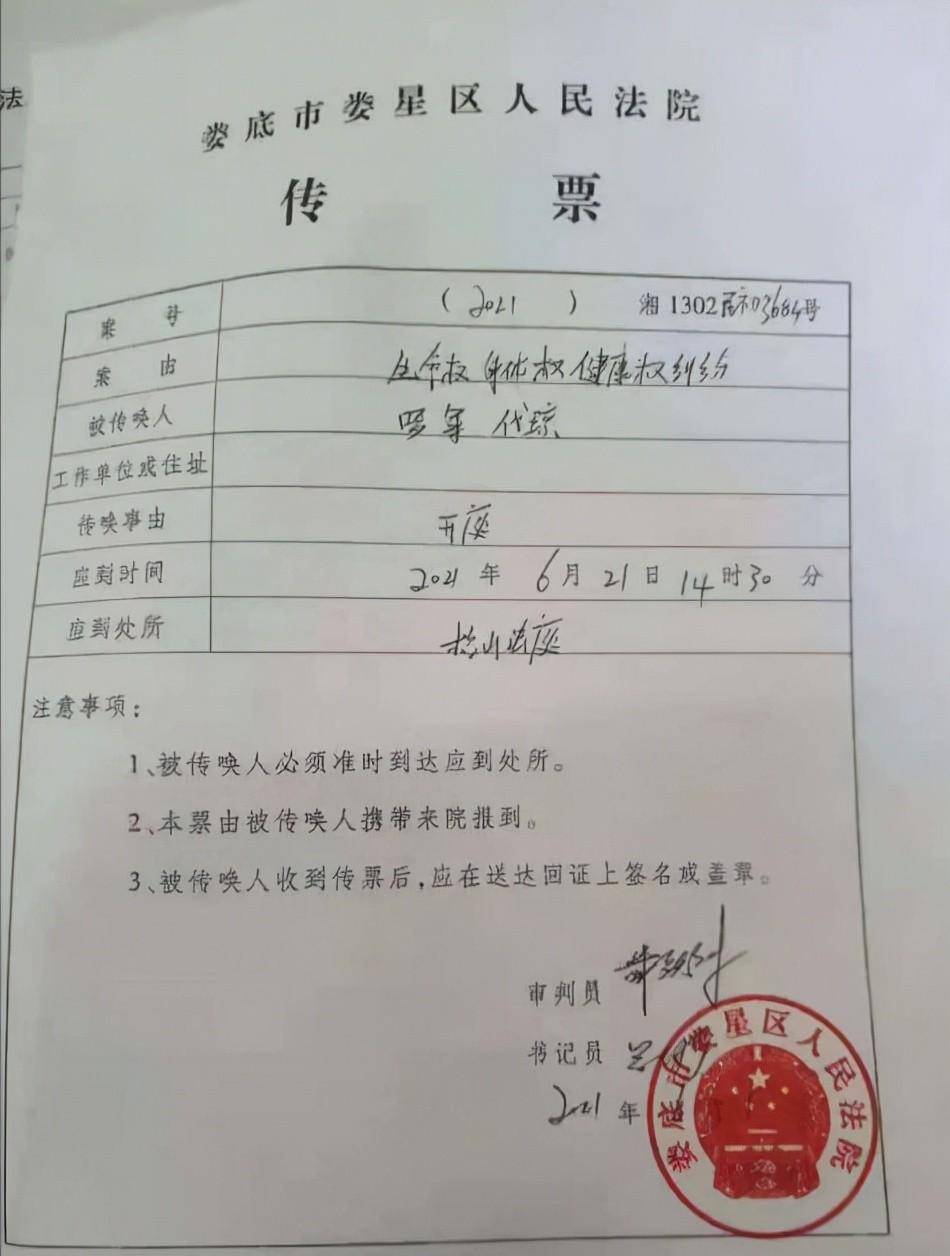 法
娄底市娄星区人民法院
传 票
案 号 (2021 ) 湘1302民初3684号
案 由 生命权 身体权 健康权纠纷
被传唤人 代琼
工作单位或住址
传唤事由 开庭
应到时间 2021年 6月21日14时30分
应到处所 杉山法庭
注意事项:
1、被传唤人必须准时到达应到处所。
2、本票由被传唤人携带来院报到。
3、被传唤人收到传票后,应在送达回证上签名或盖章。
审判员
书记员
2021年
娄底市娄星区人民法院